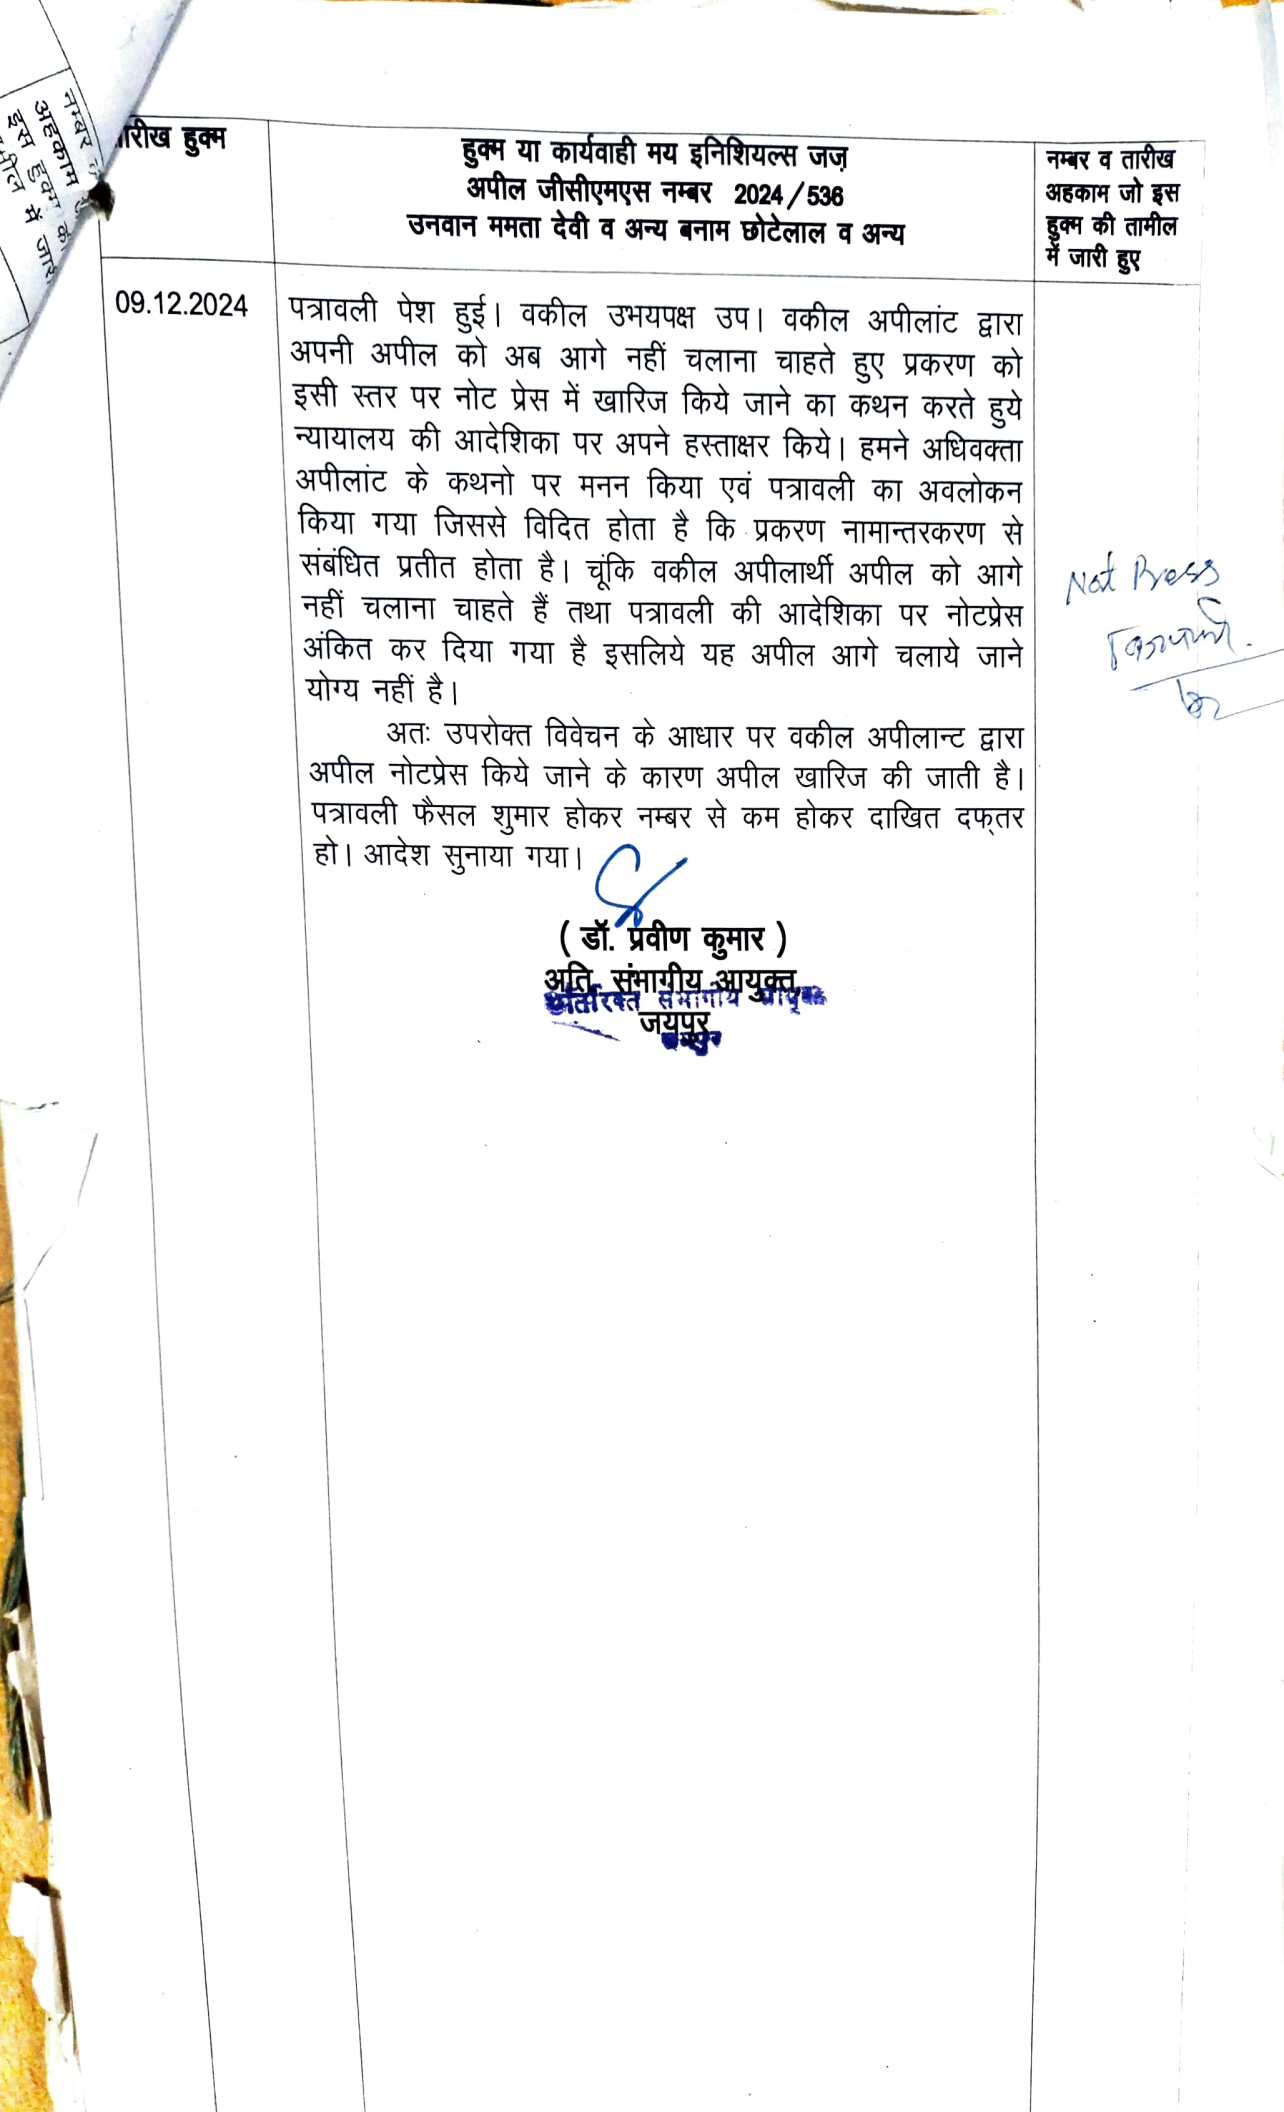 नम्बर
अहकाम
इस हुक्म की
में जारी
तारीख हुक्म
हुक्म या कार्यवाही मय इनिशियल्स जज़
अपील जीसीएमएस नम्बर 2024/536
उनवान ममता देवी व अन्य बनाम छोटेलाल व अन्य
नम्बर व तारीख
अहकाम जो इस
हुक्म की तामील
में जारी हुए
09.12.2024
पत्रावली पेश हुई। वकील उभयपक्ष उप। वकील अपीलांट द्वारा
अपनी अपील को अब आगे नहीं चलाना चाहते हुए प्रकरण को
इसी स्तर पर नोट प्रेस में खारिज किये जाने का कथन करते हुये
न्यायालय की आदेशिका पर अपने हस्ताक्षर किये। हमने अधिवक्ता
अपीलांट के कथनो पर मनन किया एवं पत्रावली का अवलोकन
किया गया जिससे विदित होता है कि प्रकरण नामान्तरकरण से
संबंधित प्रतीत होता है। चूंकि वकील अपीलार्थी अपील को आगे
नहीं चलाना चाहते हैं तथा पत्रावली की आदेशिका पर नोटप्रेस
अंकित कर दिया गया है इसलिये यह अपील आगे चलाये जाने
योग्य नहीं है।
अतः उपरोक्त विवेचन के आधार पर वकील अपीलान्ट द्वारा
अपील नोटप्रेस किये जाने के कारण अपील खारिज की जाती है।
पत्रावली फैसल शुमार होकर नम्बर से कम होकर दाखित दफ्तर
हो। आदेश सुनाया गया।
Not Press
( डॉ. प्रवीण कुमार )
अति. संभागीय आयुक्त,
अतिरिक्त संभागीय आयुक्त
जयपुर
जयपुर